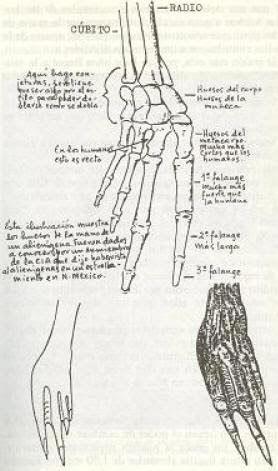 RADIO
CÚBITO
Aquí hago con-
jeturas, pero tiene
que ser algo por el es-
tilo para poder do-
blarse como se dobla.
Huesos del carpo
Huesos de la
muñeca
En los humanos
esto es recto
Huesos del
metacarpo.
Mucho más
cortos que los
humanos.
1ª falange
Mucho más
fuerte que
la humana
Esta ilustración muestra
los huesos de la mano de
un alienígena. Fueron dados
a conocer por un miembro
de la CIA que dijo haber visto
al alienígena en un estrella-
miento en N. México.
2ª falange
Más larga
3ª falange